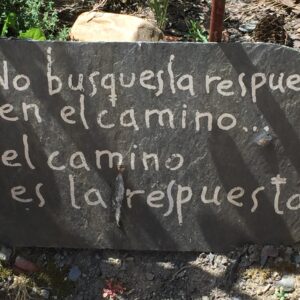 No busques la respue
en el camino...
el camino
es la respuesta